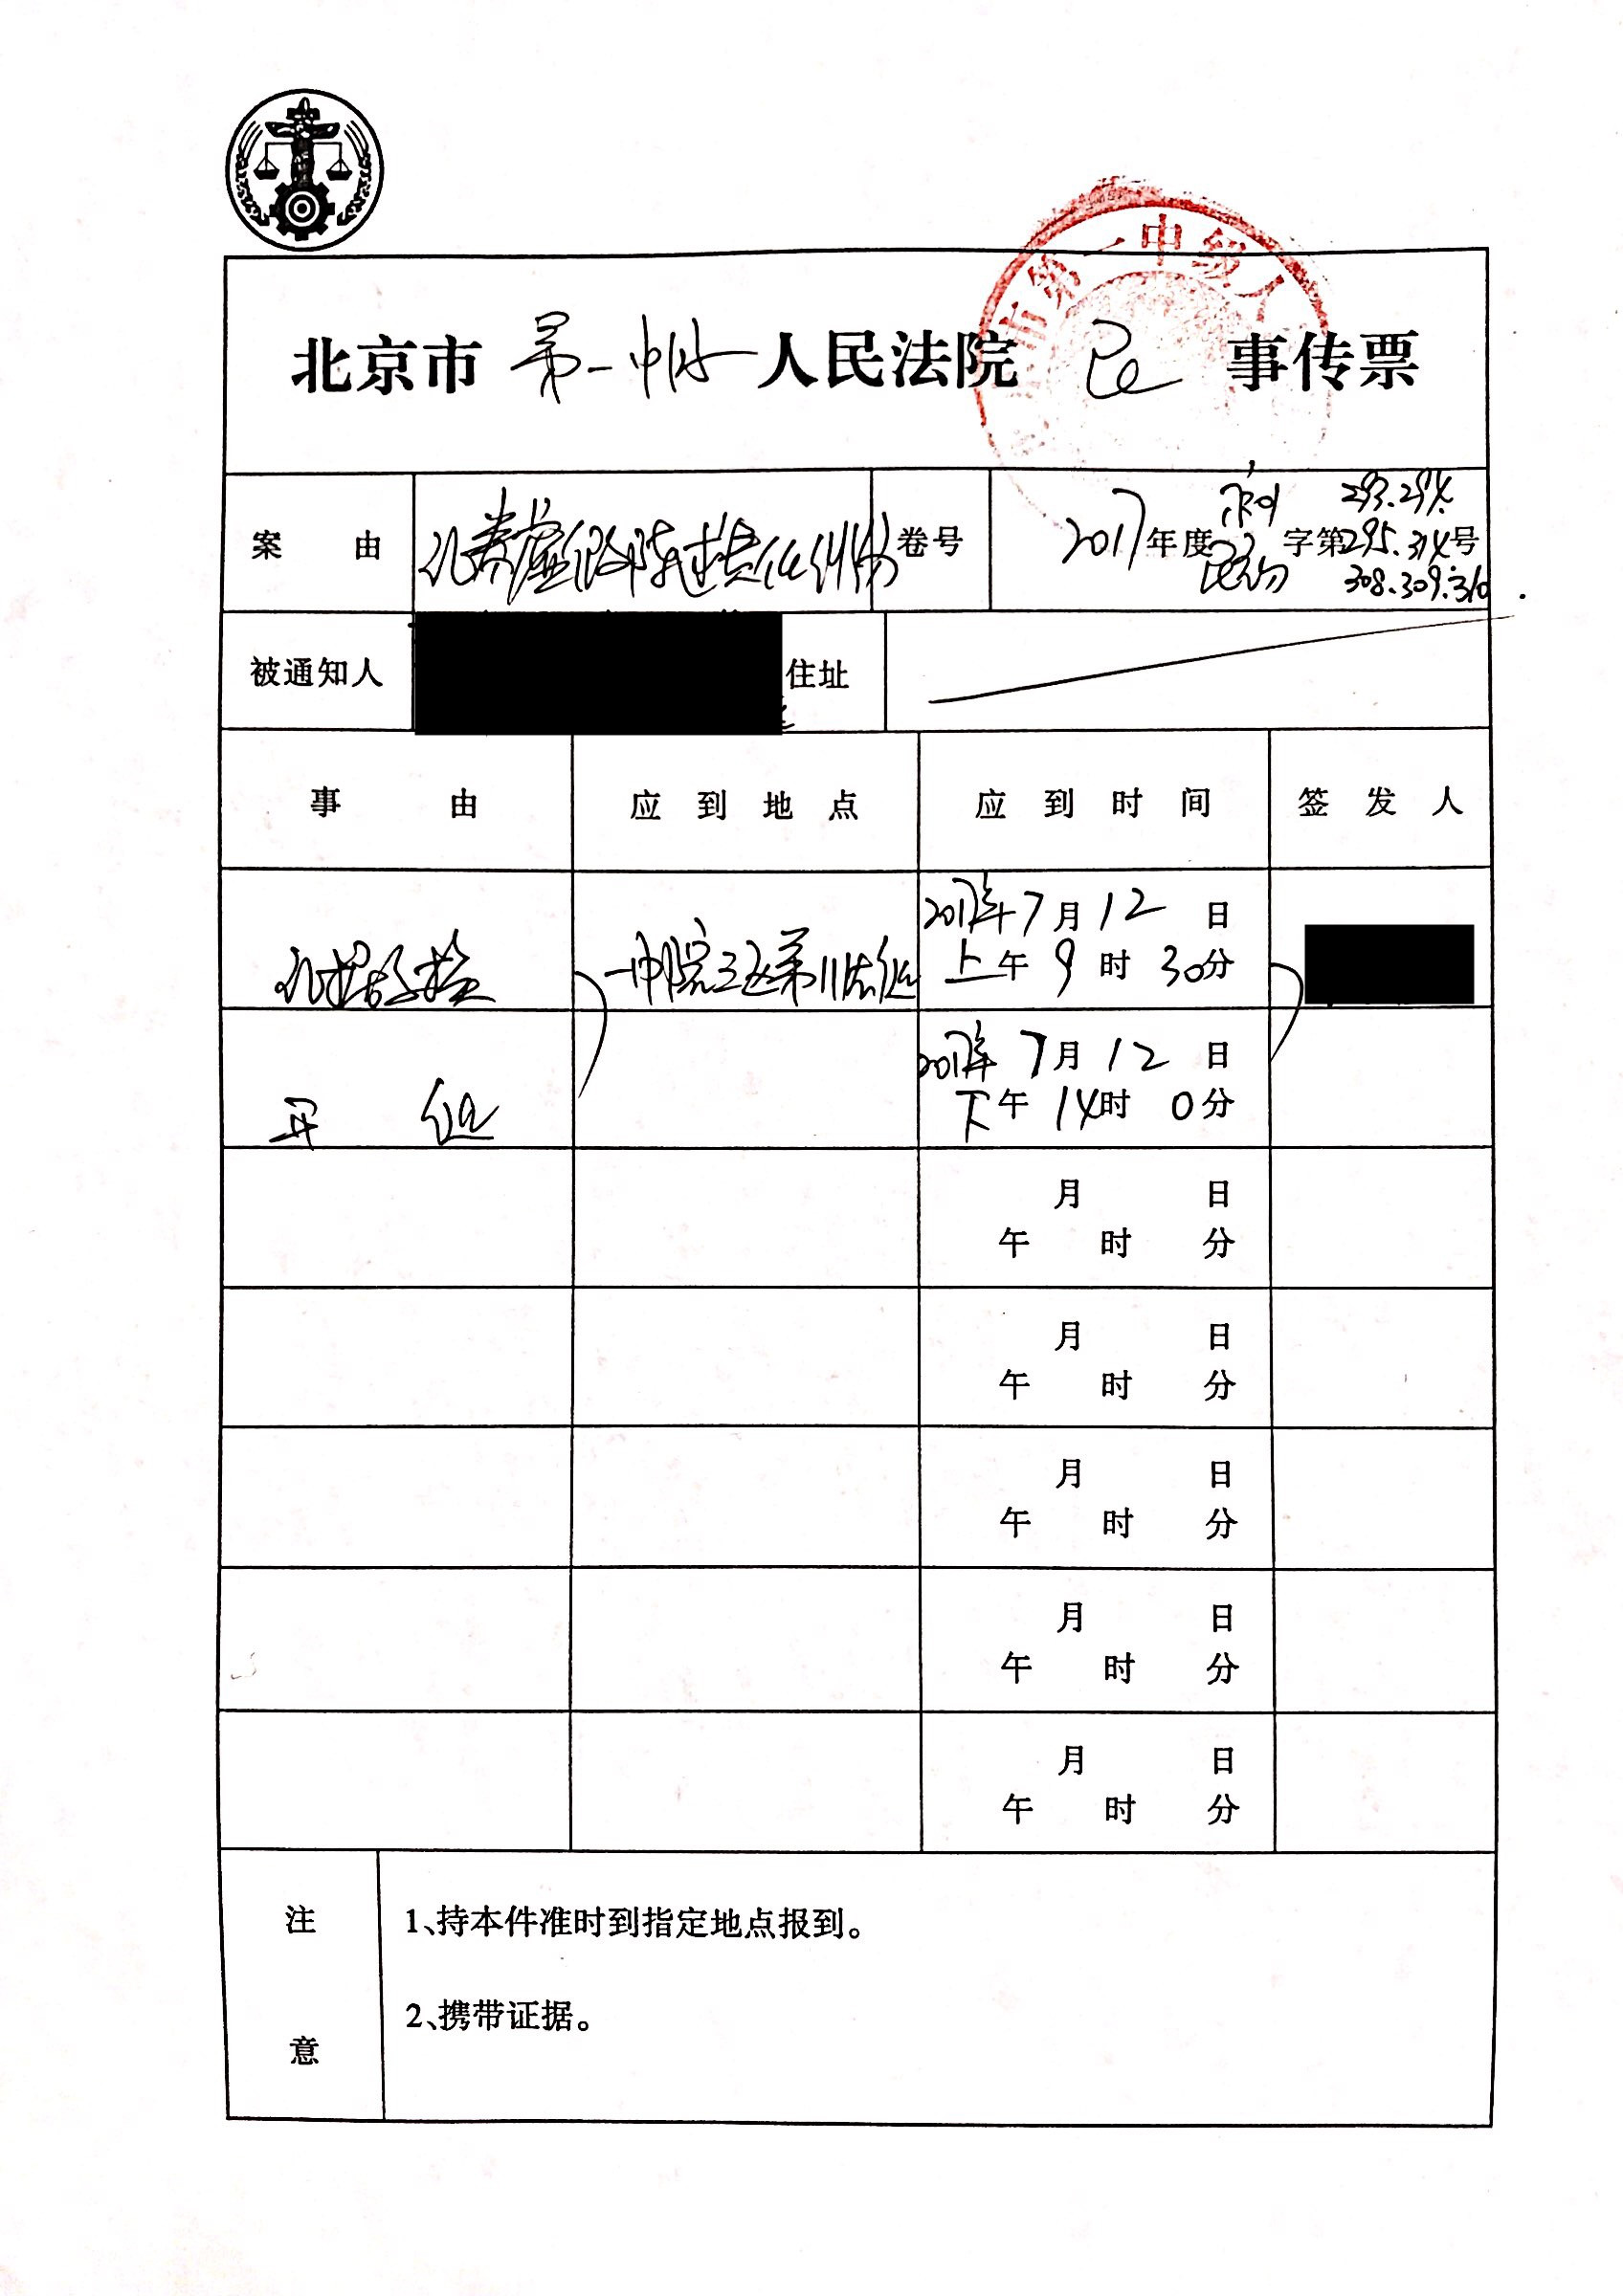 市第一中级人
北京市第一中级人民法院 民 事传票
案由 证券虚假陈述责任纠纷 卷号 2017年度京01民初字第293.294.295.314号
308.309.310
被通知人 住址
事由 应到地点 应到时间 签发人
2017年7月12日
证据交换 一中院三区第11法庭 上午9时30分
2017年7月12日
开庭 下午14时0分
月 日
午 时 分
月 日
午 时 分
月 日
午 时 分
月 日
午 时 分
月 日
午 时 分
注意
1、持本件准时到指定地点报到。
2、携带证据。